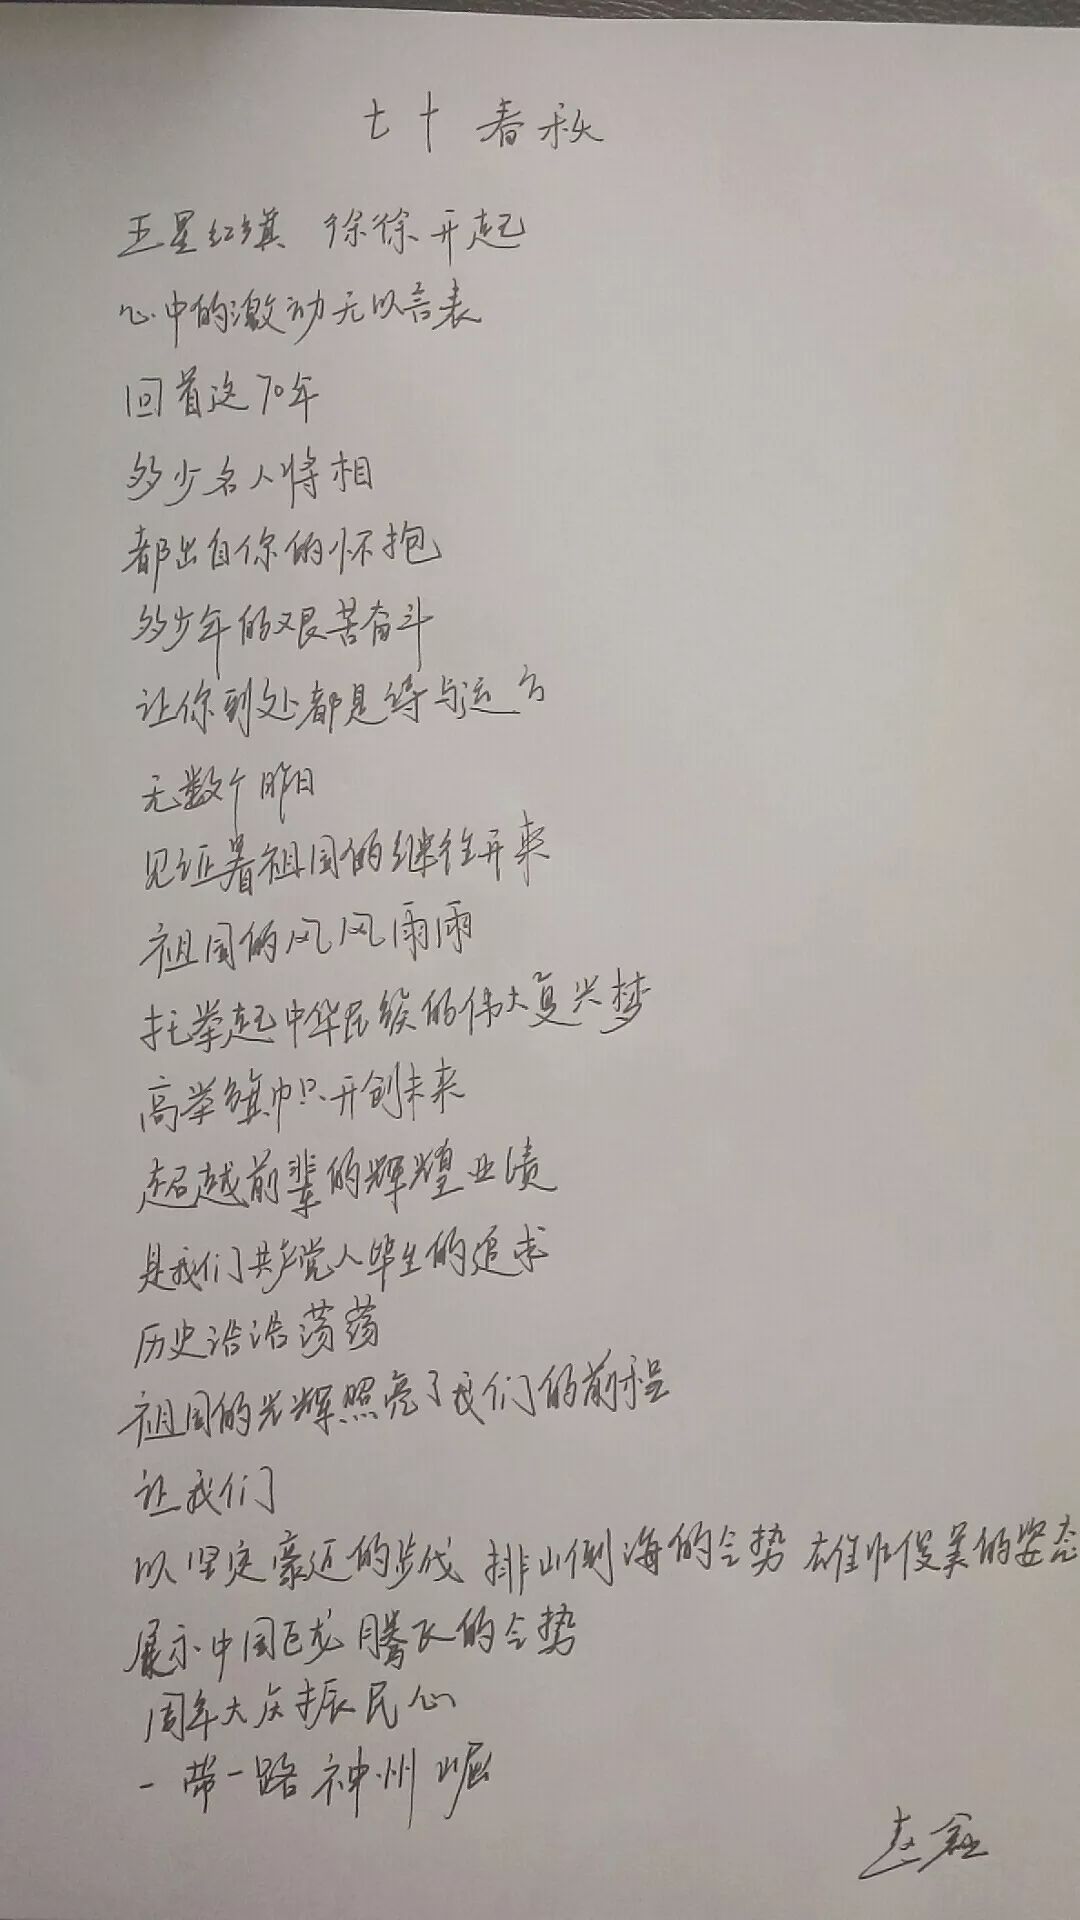 七十春秋
五星红旗 徐徐开起
心中的激动无以言表
回首这70年
多少名人将相
都出自你的怀抱
多少年的艰苦奋斗
让你到处都是诗与远方
无数个昨日
见证着祖国的继往开来
祖国的风风雨雨
托举起中华民族的伟大复兴梦
高举旗帜开创未来
超越前辈的辉煌业绩
是我们共产党人毕生的追求
历史浩浩荡荡
祖国的光辉照亮了我们的前程
让我们
以坚定豪迈的步伐 排山倒海的气势 雄壮俊美的姿态
展示中国巨龙腾飞的气势
周年大庆振民心
一带一路神州崛
赵鑫